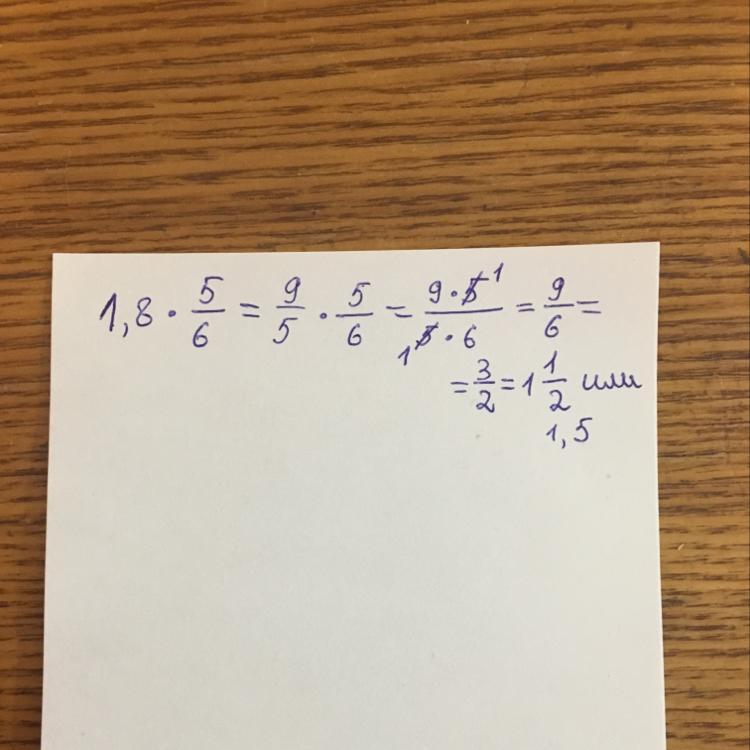 1,8 · 5/6 = 9/5 · 5/6 = 9·5 1/1 5·6 = 9/6 =
= 3/2 = 1 1/2 или
1,5